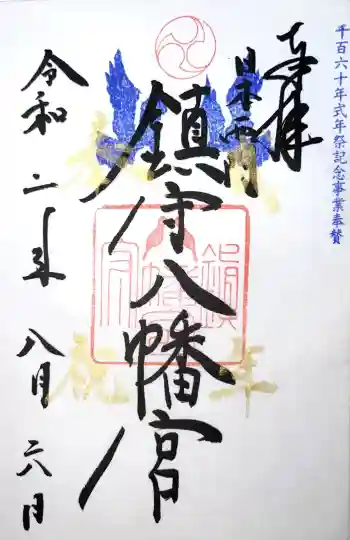 千百六十年式年祭記念事業奉賛
奉拝
日本西門
鎮守八幡宮
令和二年
八月六日